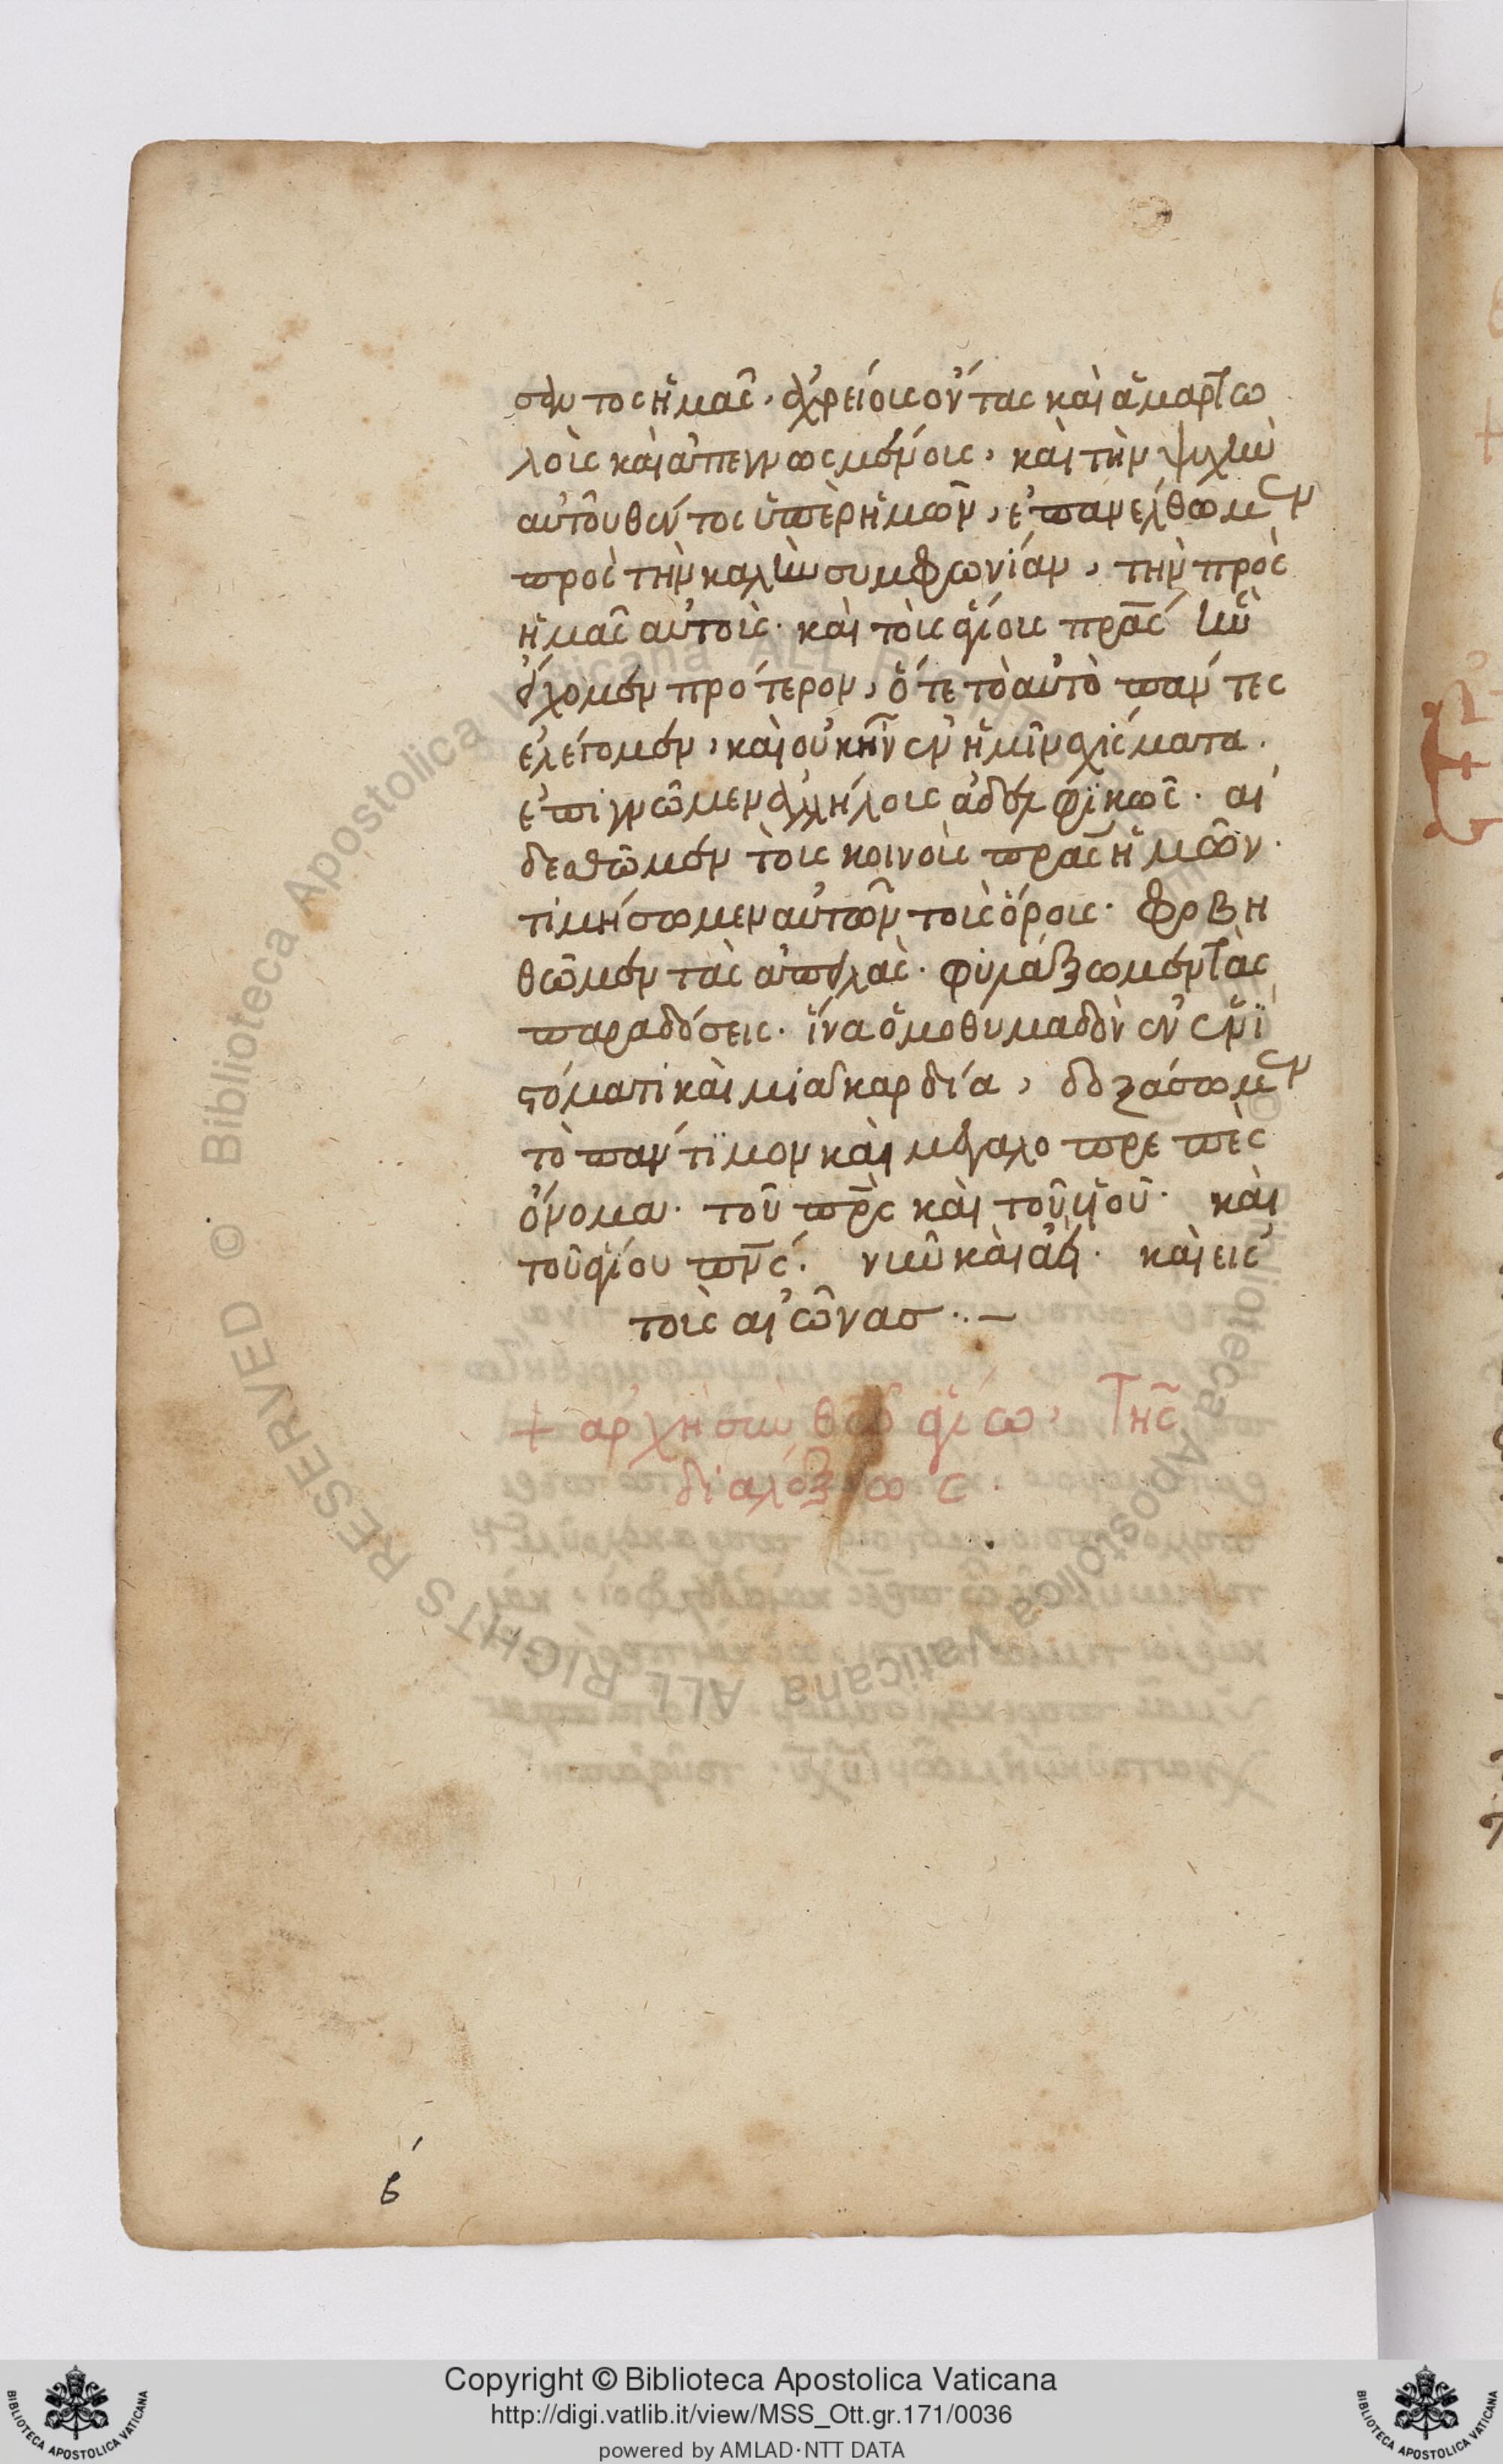 σαντος ἡμᾶς, ἀχρείους ὄντας καὶ ἁμαρτω
λοὺς καὶ ἀπεγνωσμένους, καὶ τὴν ψυχὴν
αὐτοῦ θέντος ὑπὲρ ἡμῶν, ἐπανέλθωμεν
πρὸς τὴν καλὴν συμφωνίαν, τὴν πρὸς
ἡμᾶς αὐτοὺς. καὶ τοὺς ἁγίους πρας ἣν
εἴχομεν πρότερον, ὅτε τὸ αὐτὸ πάντες
ἐλέγομεν, καὶ οὐκ ἦν ἐν ἡμῖν σχίσματα.
ἐπιγνῶμεν ἀλλήλους ἀδελφικῶς. αἰ
δεσθῶμεν τοὺς κοινοὺς πρας ἡμῶν.
τιμήσωμεν αὐτῶν τοὺς ὅρους. φοβη
θῶμεν τὰς ἀπειλὰς. φυλάξωμεν τὰς
παραδόσεις. ἵνα ὁμοθυμαδὸν ἐν ἑνὶ
στόματι καὶ μιᾷ καρδίᾳ, δοξάσωμεν
τὸ πάντιμον καὶ μεγαλοπρεπὲς
ὄνομα. τοῦ πρς καὶ τοῦ υἱοῦ. καὶ
τοῦ ἁγίου πνς. νῦν καὶ ἀεὶ. καὶ εἰς
τοὺς αἰῶνας
+ ἀρχὴ σὺν θεῷ ἁγίῳ, τῆς
διαλέξεως.
β
Copyright © Biblioteca Apostolica Vaticana
http://digi.vatlib.it/view/MSS_Ott.gr.171/0036
powered by AMLAD·NTT DATA